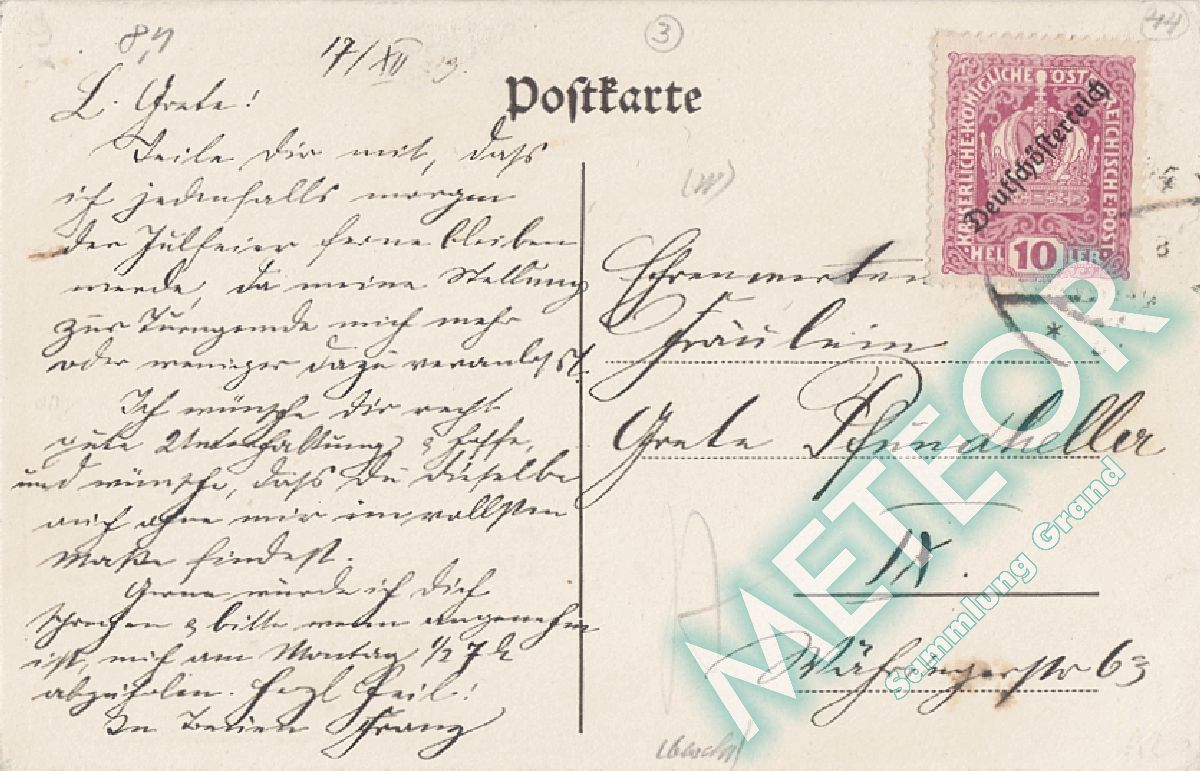 8,4
17/XII 19.
3
44
Postkarte
L. Grete!
Teile dir mit, dass
ich jedenfalls morgen
der Julfeier ferne bleiben
werde, da meine Stellung
zur Turngemeinde mich mehr
oder weniger dazu veranlasst.
Ich wünsche dir recht
gute Unterhaltung & hoffe,
und wünsche, dass Du dieselbe
auch ohne mir im vollsten
Maße findest.
Gerne würde ich Dich
sprechen & bitte wenn angenehm
ist, mich am Montag 1/2 7 h
abzuholen. Heil!
In Treuen Franz
KAISERLICHE·KÖNIGLICHE ÖSTERREICHISCHE·POST
Deutschösterreich
HEL 10 LER
Ehrenwerten
Fräulein
Grete
IX.
Währingerstr 63
METEOR
Sammlung Grand